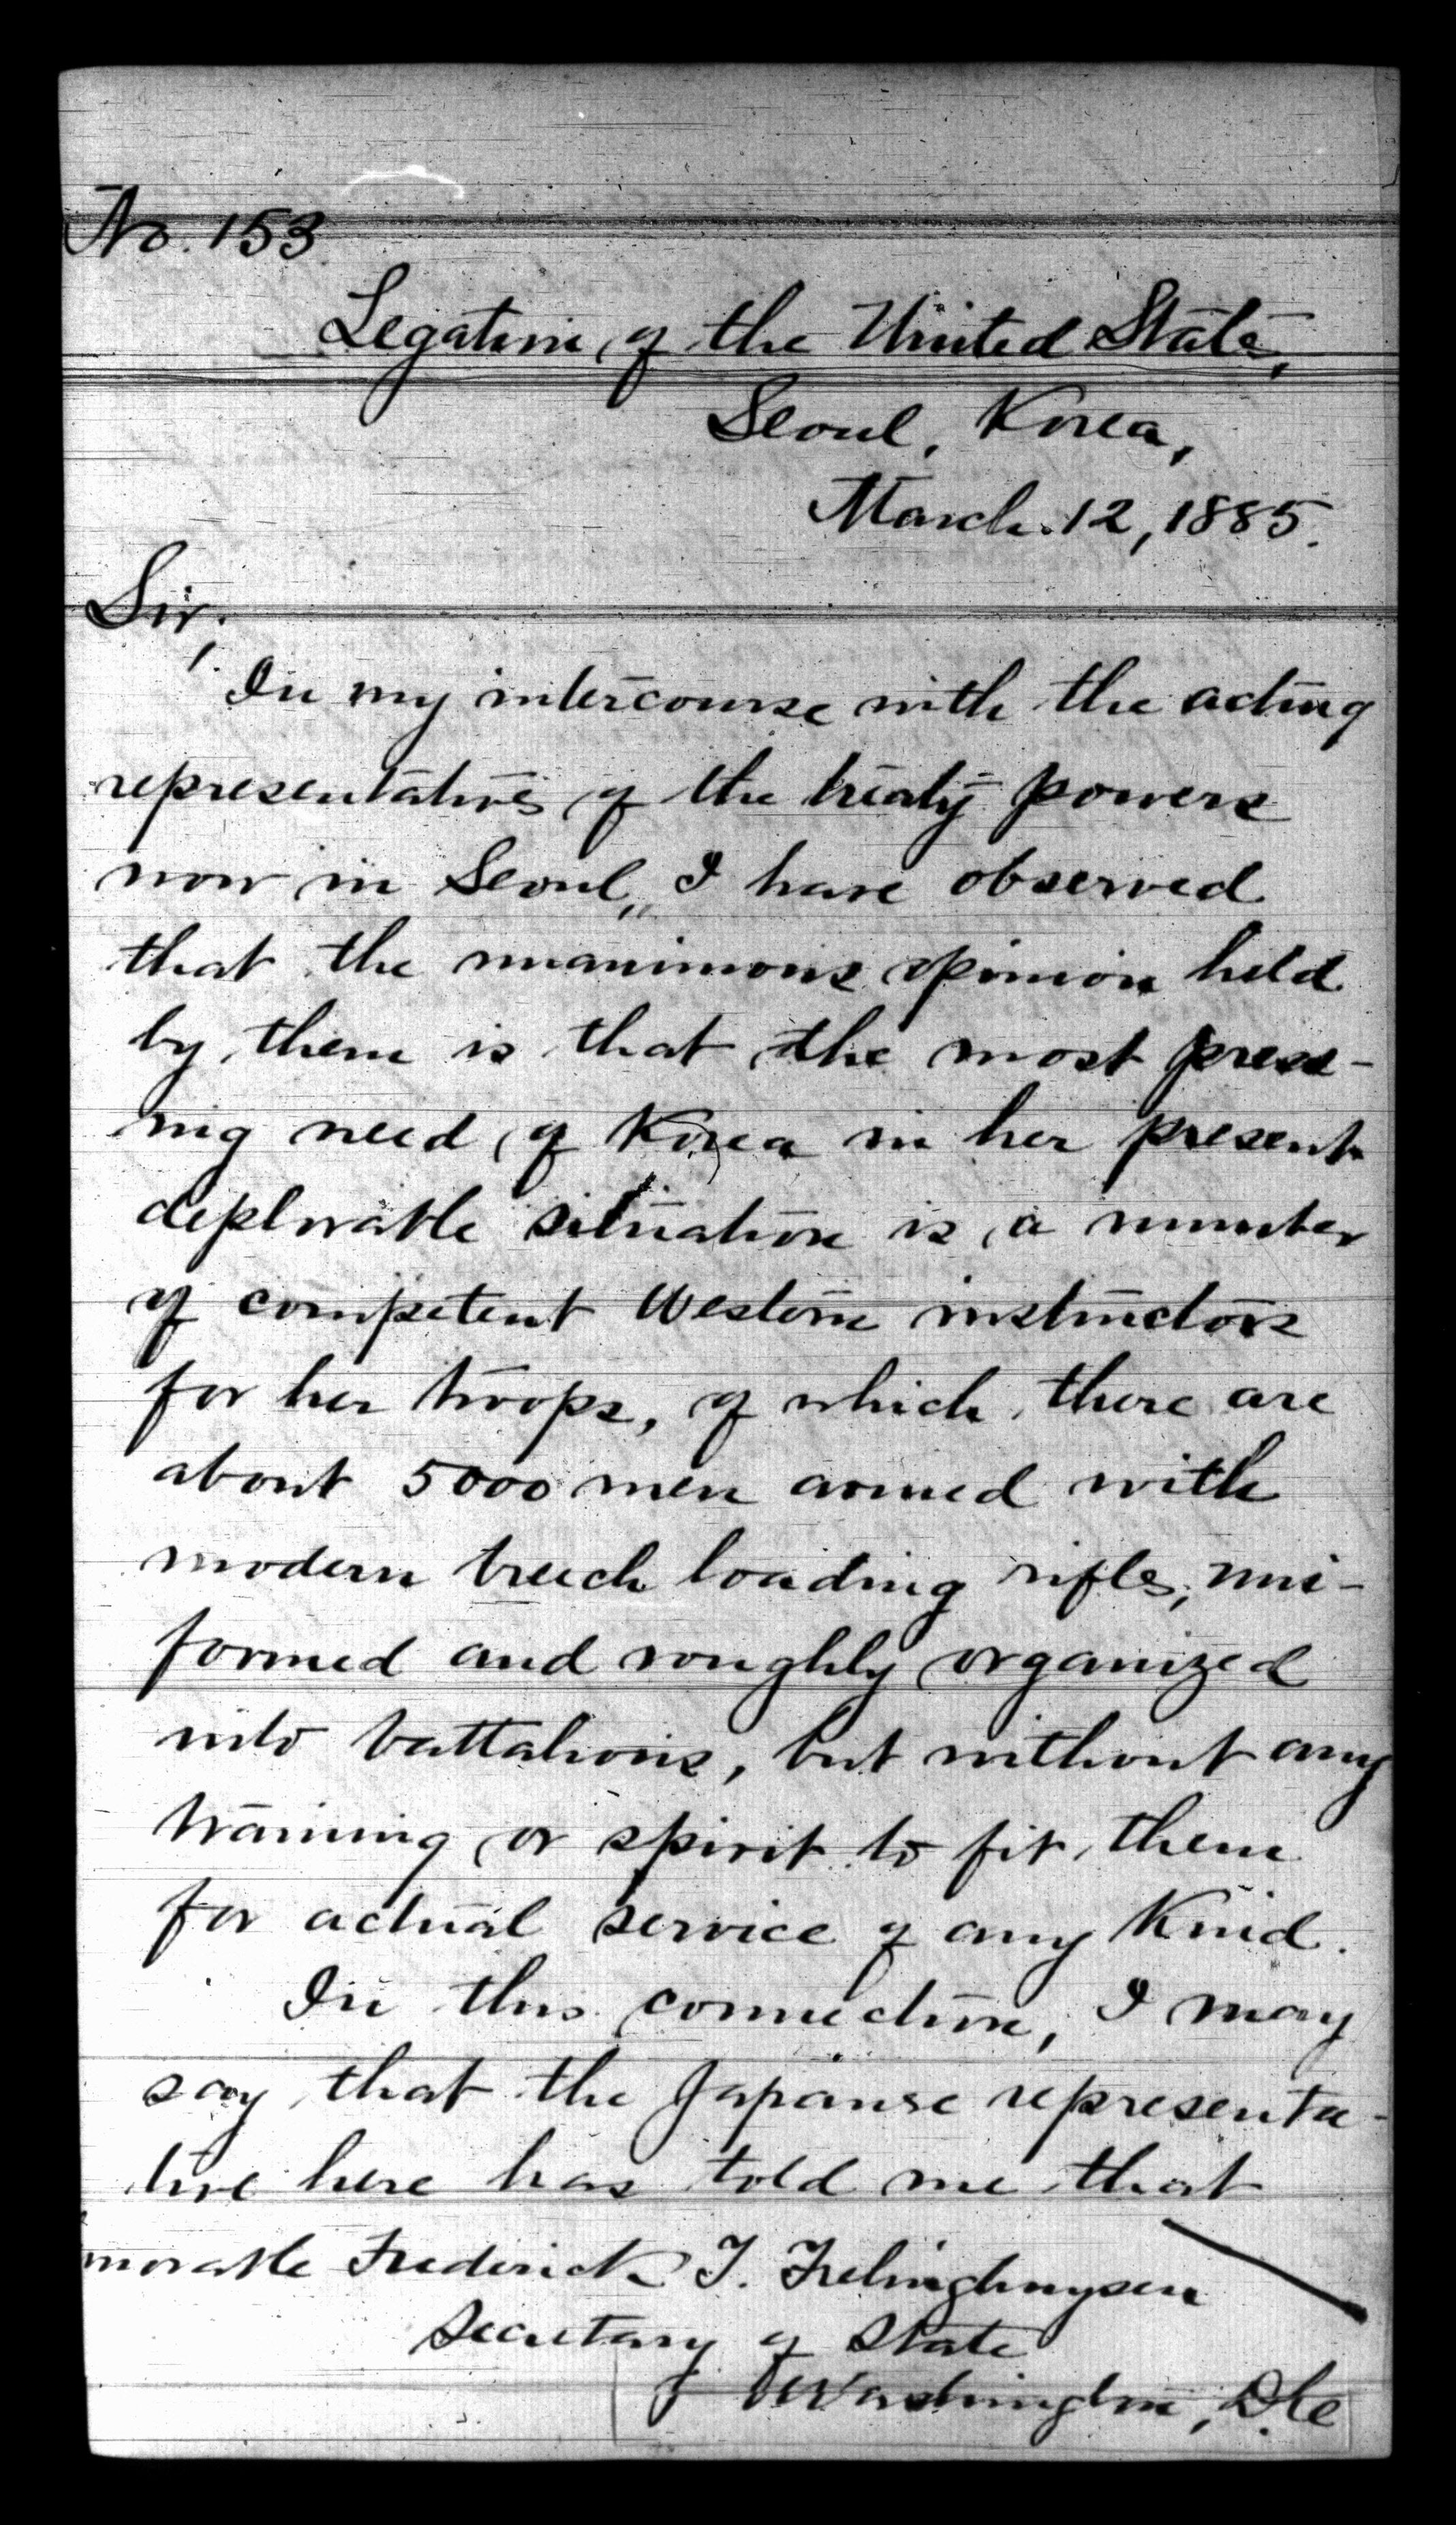 No. 153
Legation of the United States,
Seoul, Korea,
March 12, 1885.
Sir,
In my intercourse with the acting
representatives of the treaty powers
now in Seoul, I have observed
that the unanimous opinion held
by them is that the most press-
ing need of Korea in her present
deplorable situation is a number
of competent Western instructors
for her troops, of which there are
about 5000 men armed with
modern breech loading rifles, uni-
formed and roughly organized
into battalions, but without any
training or spirit to fit them
for actual service of any kind.
In this connection, I may
say that the Japanese representa-
tive here has told me that
norable Frederick T. Frelinghuysen
Secretary of State
Washington, D.C.